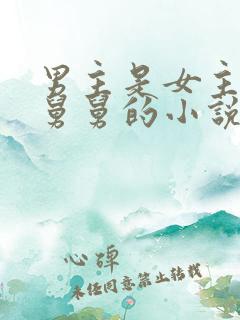 男主是女主
舅舅的小说
心碎
未经同意禁止转载